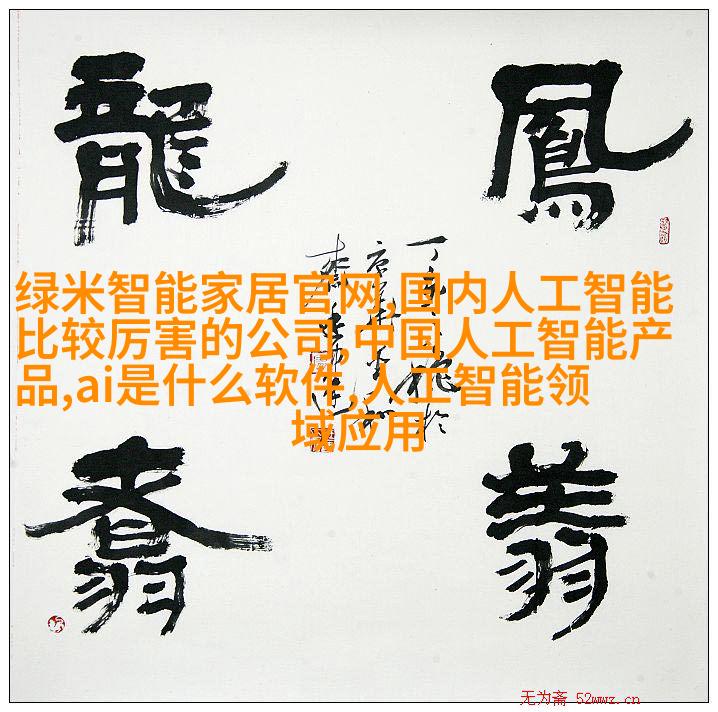 龍 鳳
绿米智能家居官网,国内人工智能
比较厉害的公司,中国人工智能产
品,ai是什么软件,人工智能领
域应用
翥 翔
无为斋 52wwz.cn